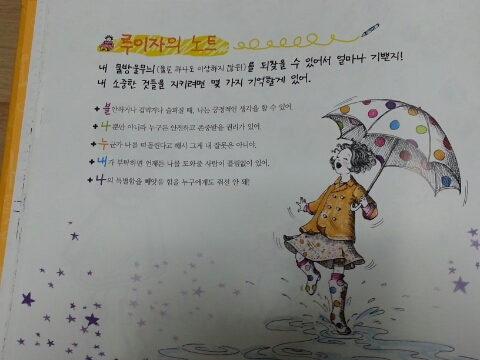 루이자의 노트
내 물방울무늬(물론 하나도 이상하지 않은!)를 되찾을 수 있어서 얼마나 기쁜지!
내 소중한 것들을 지키려면 몇 가지 기억할게 있어.
+ 불안하거나 겁먹거나 슬퍼질 때, 나는 긍정적인 생각을 할 수 있어.
+ 나뿐만 아니라 누구든 안전하고 존중받을 권리가 있어.
+ 누군가 나를 따돌린다고 해서 그게 내 잘못은 아니야.
+ 내가 부탁하면 언제든 나를 도와줄 사람이 틀림없이 있어.
+ 나의 특별함을 빼앗을 힘을 누구에게도 줘선 안 돼!